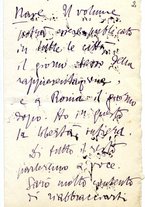 2
Nave. Il volume
potrà esser pubblicato
in tutte le città
il giorno stesso della
rappresentazione,
e a Roma il giorno
dopo. Ho in questo
la libertà intera.
Di tutto il resto
parleremo a voce.
Sarò molto contento
di riabbracciarti